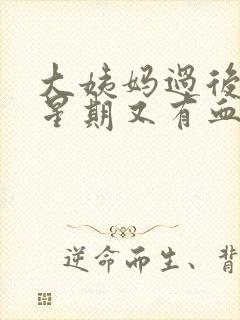 大姨妈過後
星期又有血
逆命而生、背